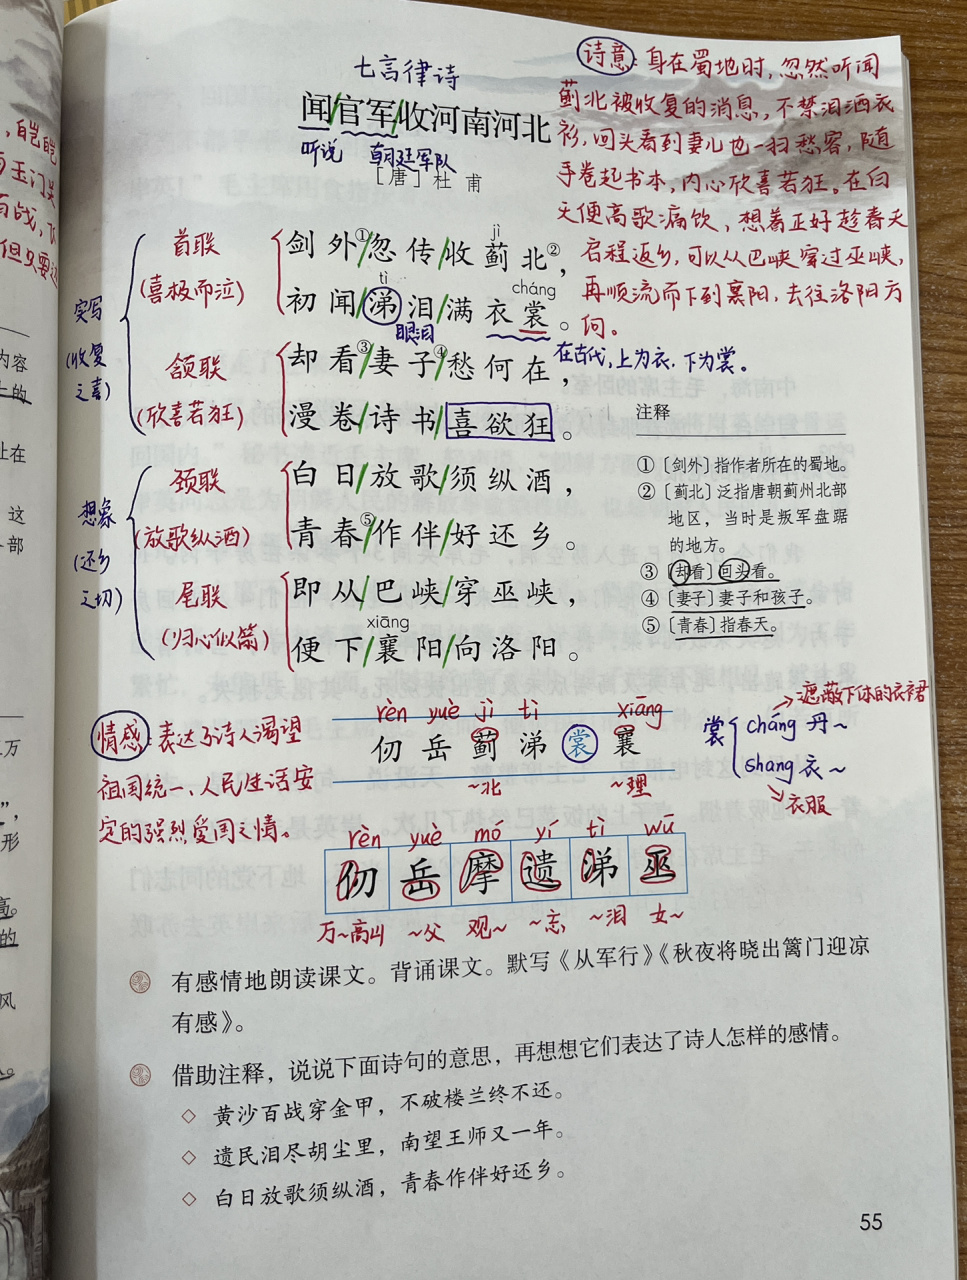 七言律诗
闻/官军/收河南河北
听说 朝廷军队
[唐] 杜 甫
诗意：身在蜀地时，忽然听闻
蓟北被收复的消息，不禁泪洒衣
衫，回头看到妻儿也一扫愁容，随
手卷起书本，内心欣喜若狂。在白
天便高歌痛饮，想着正好趁春天
启程返乡，可以从巴峡穿过巫峡，
再顺流而下到襄阳，去往洛阳方
向。
实写
(收复
之喜)
首联
(喜极而泣)
jì
剑外①/忽传/收蓟北②，
tì cháng
初闻/涕泪/满衣裳。
眼泪
在古代，上为衣，下为裳。
颔联
(欣喜若狂)
却看③/妻子④/愁何在，
漫卷/诗书/喜欲狂。
想象
(还乡
之切)
颈联
(放歌纵酒)
白日/放歌/须纵酒，
青春⑤/作伴/好还乡。
尾联
(归心似箭)
即从/巴峡/穿巫峡，
xiāng
便下/襄阳/向洛阳。
注释
①〔剑外〕指作者所在的蜀地。
②〔蓟北〕泛指唐朝蓟州北部
地区，当时是叛军盘踞
的地方。
③〔却看〕回头看。
④〔妻子〕妻子和孩子。
⑤〔青春〕指春天。
情感：表达了诗人渴望
祖国统一、人民生活安
定的强烈爱国之情。
rèn yuè jì tì xiāng
仞 岳 蓟 涕 裳 襄
~北 ~理
遮蔽下体的衣裙
裳
cháng 丹~
shang 衣~
衣服
rèn yuè mó yí tì wū
仞 岳 摩 遗 涕 巫
万~高山 ~父 观~ ~忘 ~泪 女~
有感情地朗读课文。背诵课文。默写《从军行》《秋夜将晓出篱门迎凉
有感》。
借助注释，说说下面诗句的意思，再想想它们表达了诗人怎样的感情。
◇ 黄沙百战穿金甲，不破楼兰终不还。
◇ 遗民泪尽胡尘里，南望王师又一年。
◇ 白日放歌须纵酒，青春作伴好还乡。
55